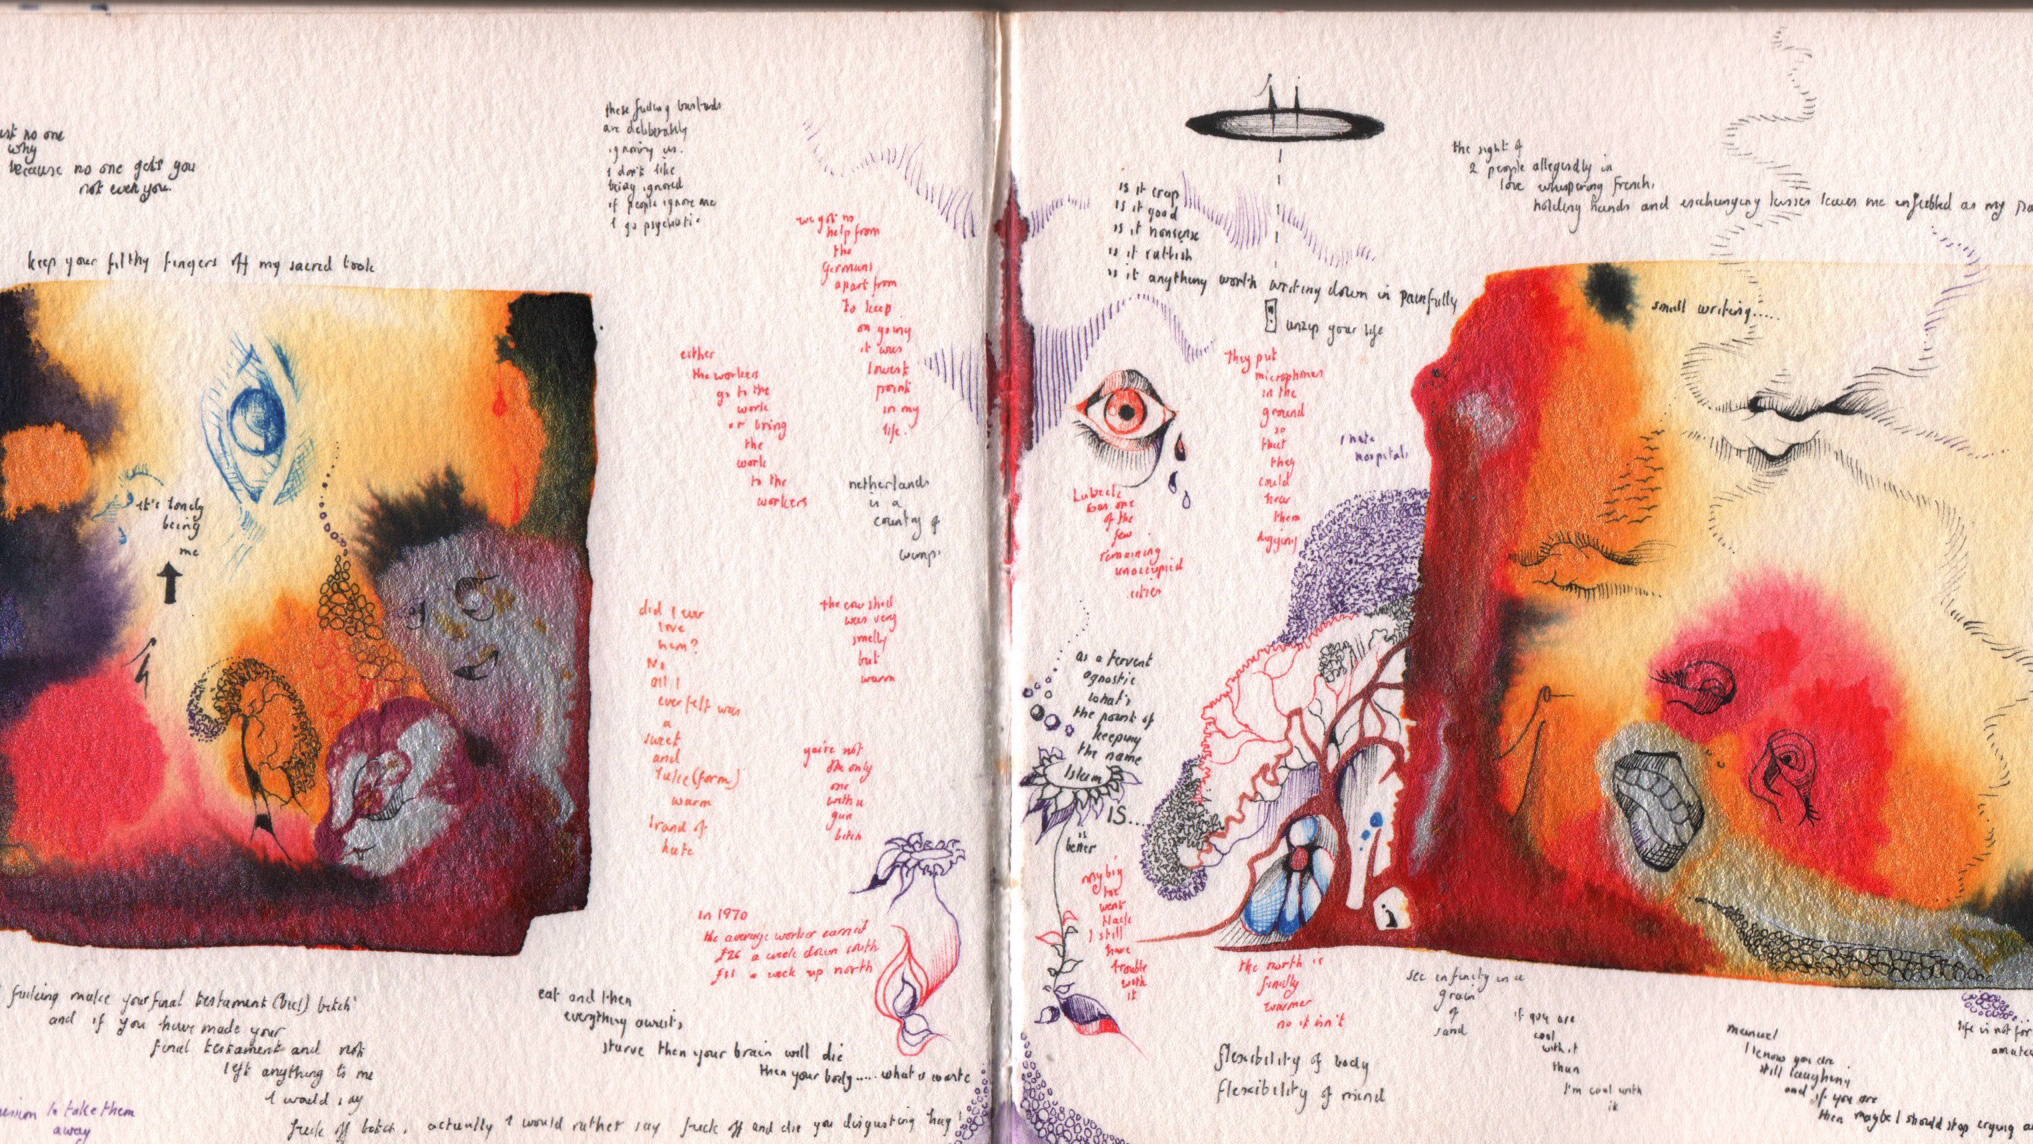 no one
why
because no one gets you
not even you.
keep your filthy fingers off my sacred book
it's lonely
being
me
these fucking bastards
are deliberately
ignoring us.
I don't like
being ignored
if people ignore me
I go psychotic
we got no
help from
the
Germans
apart from
to keep
on going
it was
lowest
point
in my
life.
either
the workers
go to the
work
or bring
the
work
to the
workers
netherlands
is a
country of
did I ever
love
him?
No
all I
ever felt was
a
sweet
and
(form)
warm
brand of
hate
the cow shed
was very
smelly
but
warm
you're not
the only
one
with a
gun
bitch
in 1970
the average worker earned
£26 a week down south
a week up north
fucking make your final testament (bic!) bitch'
and if you have made your
final testament and not
left anything to me
I would say
fuck off bitch. actually I would rather say fuck off and die you disgusting hag!
to take them
away
eat and then
everything awaits
starve then your brain will die
then your body..... what a waste
is it crap
is it good
is it nonsense
is it rubbish
is it anything worth writing down in painfully
small writing.....
unzip your life
the sight of
2 people allegedly in
love whispering french,
holding hands and exchanging kisses leaves me enfeebled as my
they put
microphones
in the
ground
so
that
they
could
hear
them
digging
I hate
hospitals
Lubeck
was one
of the
few
remaining
unoccupied
cities
as a fervent
agnostic
what's
the point of
keeping
the name
Islam
IS....
is
better
my big
toe
went
black
I still
have
trouble
with
it
the north is
finally
warmer
no it isn't
see infinity in a
grain
of
sand
if you are
cool
with it
than
I'm cool with
it
flexibility of body
flexibility of mind
manuel
I know you are
still laughing
and if you are
then maybe I should stop crying
life is not for